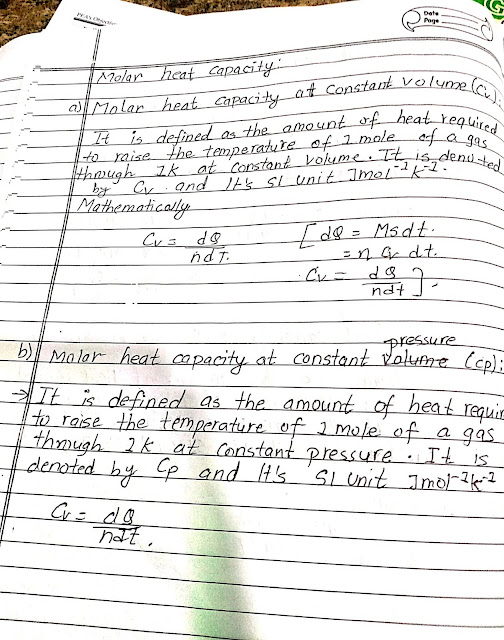 Date
Page
Molar heat capacity:
a) Molar heat capacity at constant volume (Cv)
It is defined as the amount of heat required
to raise the temperature of 1 mole of a gas
through 1k at constant volume. It is denoted
by Cv and It's SI unit Jmol⁻¹k⁻¹.
Mathematically
Cv = dQ / ndT. [dQ = Msdt.
= n Cv dt.
Cv = dQ / ndt].
pressure
b) Molar heat capacity at constant volume (Cp):
→ It is defined as the amount of heat requir
to raise the temperature of 1 mole of a gas
through 1k at constant pressure. It is
denoted by Cp and It's SI unit Jmol⁻¹k⁻¹
Cv = dQ / ndt.